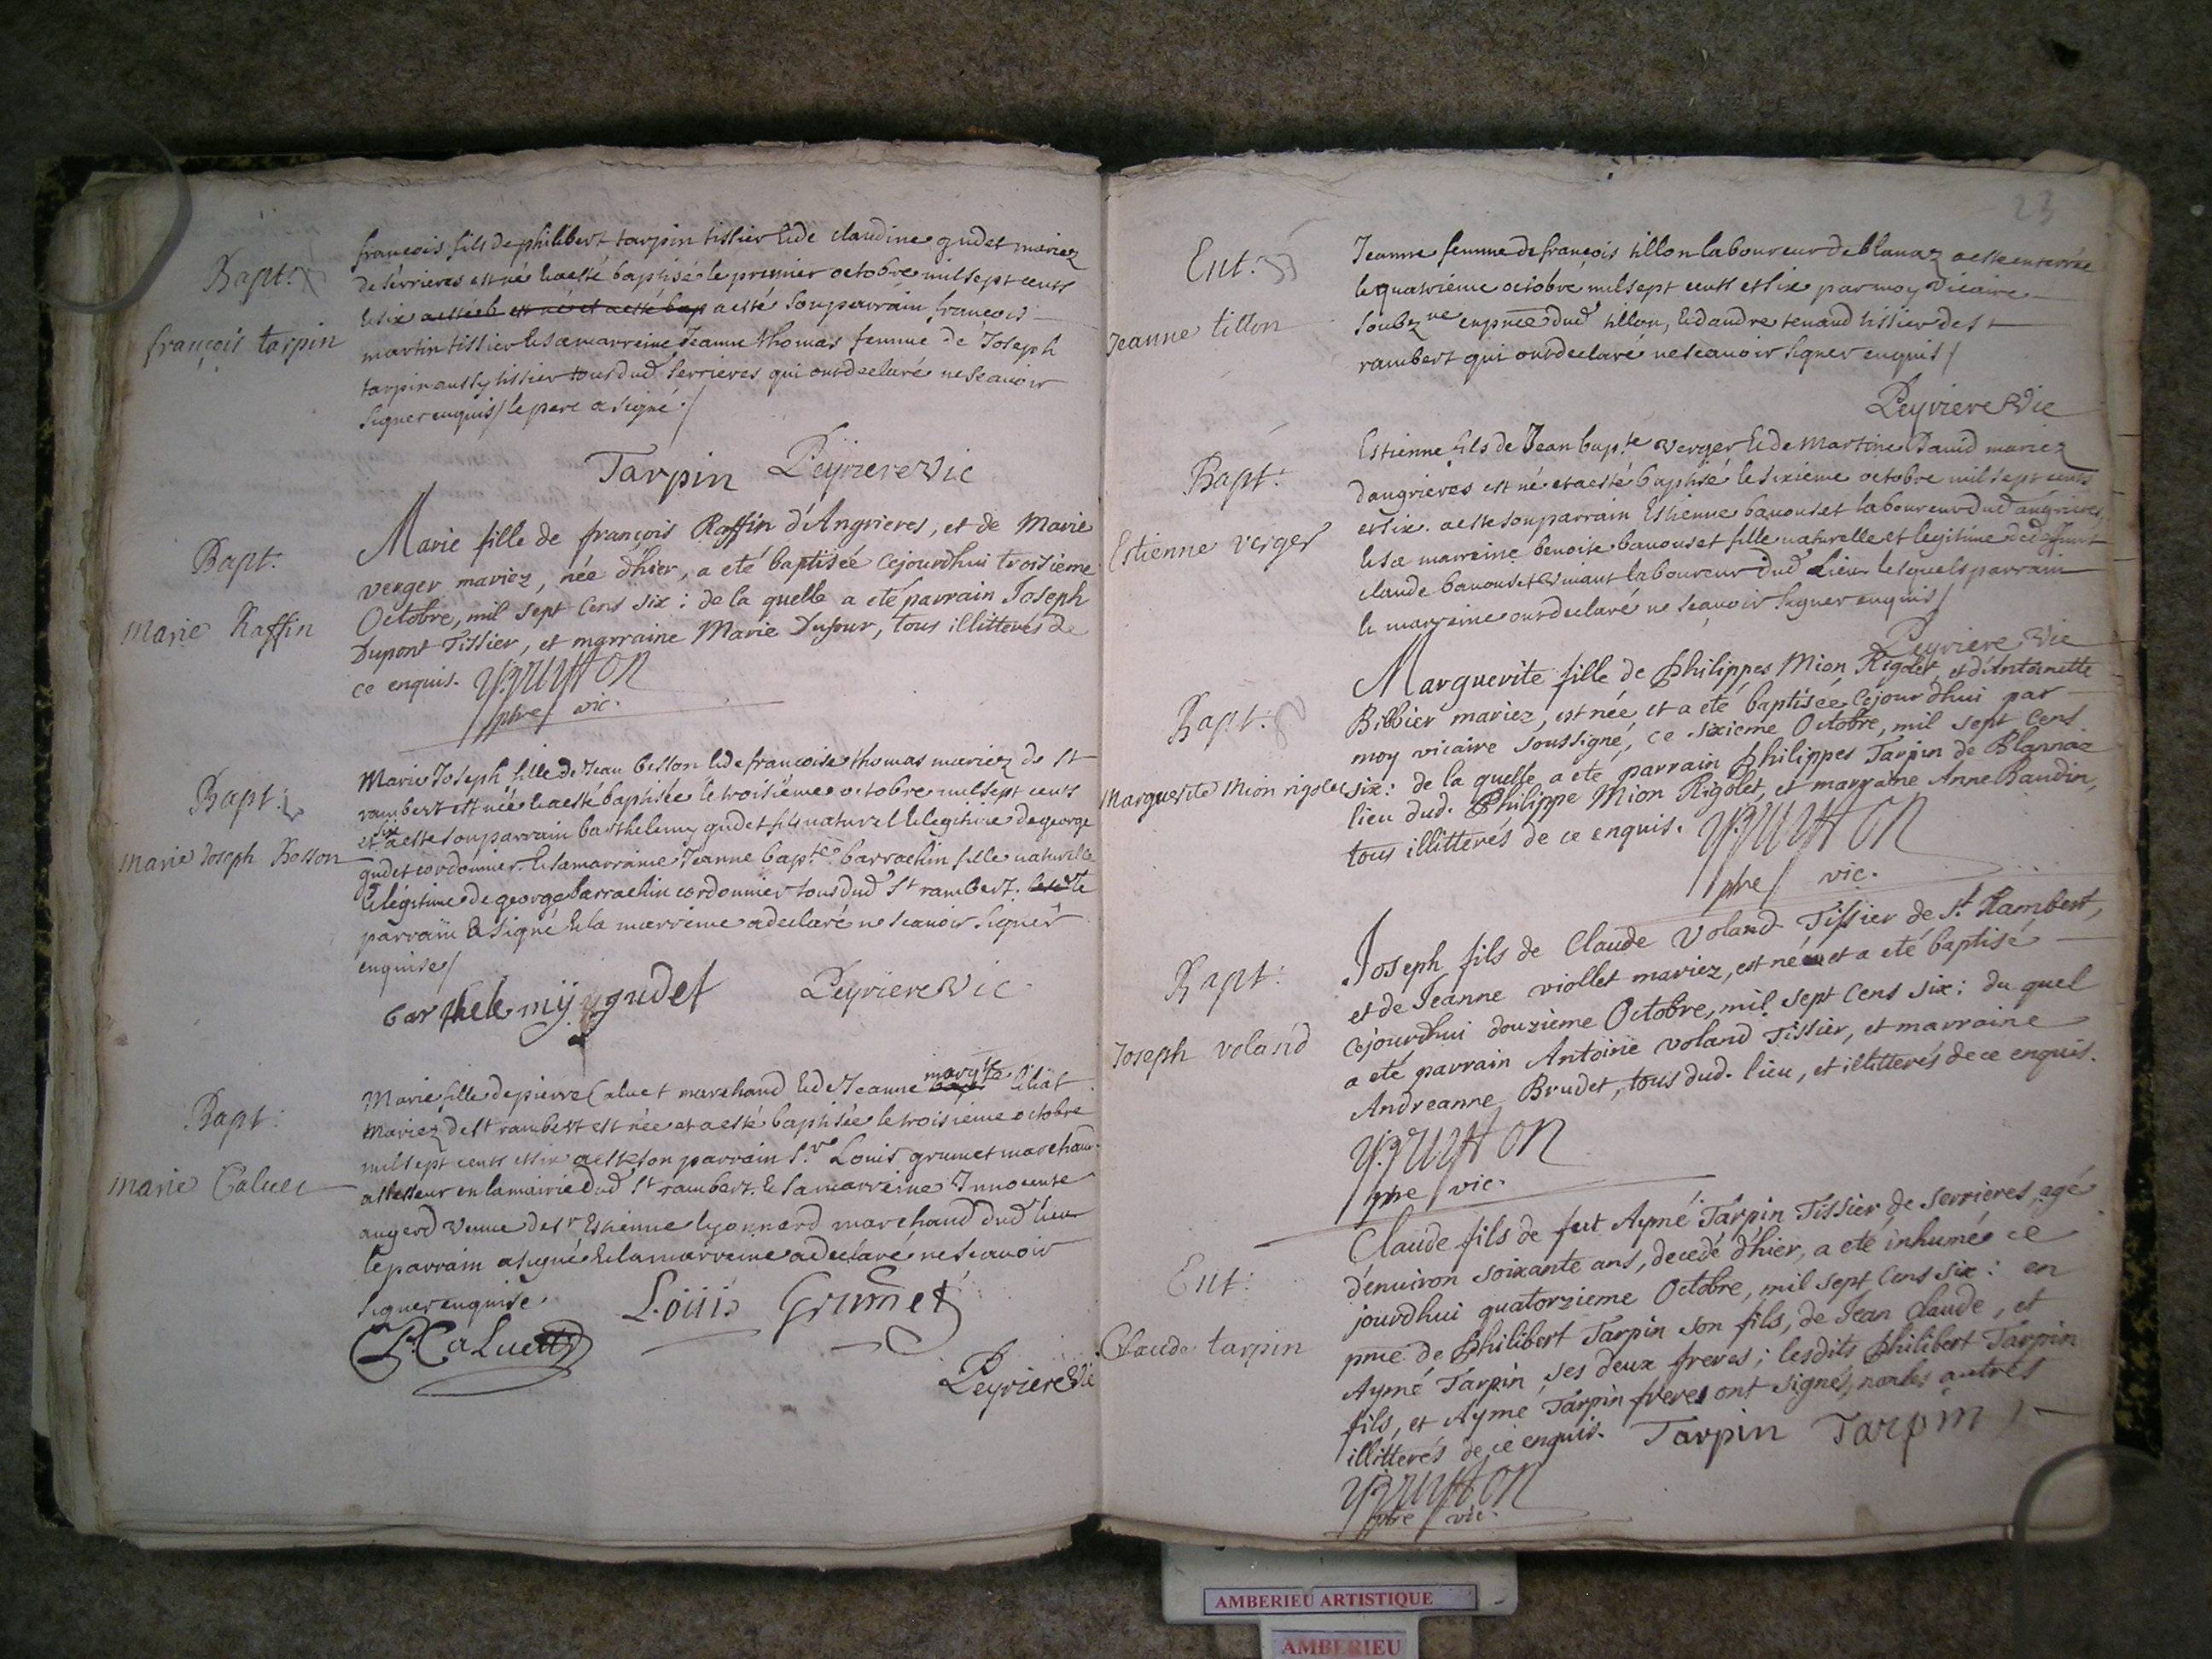 Bapt.
françois tarpin
francois fils de philibert tarpin tissier & de claudine gudet mariez
de serrieres est né & a esté baptisé le premier octobre mil sept cents
& six a esté b est né et a esté bap a esté son parrain francois
martin tissier & sa marreine Jeanne thomas femme de Joseph
tarpin aussy tissier tous dud serrieres qui ont declaré ne scavoir
signer enquis / le pere a signé ./
Tarpin Peyriere Vic
Bapt.
Marie Raffin
Marie fille de françois Raffin d'Angrieres, et de Marie
verger mariez, née d'hier, a eté baptisée cejourdhui troisieme
Octobre, mil sept cens six : de la quelle a eté parrain Joseph
Dupont Tissier, et marraine Marie Dufour, tous illitterés de
ce enquis.
pbre vic.
Bapt:
Marie Joseph Besson
Marie Joseph fille de Jean besson & de francoise thomas mariez de st
rambert est née & a esté baptisée le troisieme octobre mil sept cents
et six a esté son parrain barthelemy gudet fils naturel & legitime de george
gudet cordonnier & sa marraine Jeanne bapte barrachin fille naturelle
& légitime de george barrachin cordonnier tous dud st rambert. le
parrain a signé & la marreine a declaré ne scavoir signer
enquise /
barthelemÿ gudet Peyriere Vic
Bapt:
marie Caluet
Marie fille de pierre Caluet marchand & de Jeanne margte liliat
Mariez de st rambert est née et a esté baptisée le troisieme octobre
mil sept cents et six a esté son parrain sr Louis grumet marchand
assesseur en la mairie dud st rambert. & sa marreine Innocente
augerd veuue de sr Estienne lyonnard marchand dud lieu
le parrain a signé & la marreine a declaré ne scavoir
signer enquise.
P. Caluet Loüis Grumet
Peyriere Vic
23
Ent:
Jeanne tillon
Jeanne femme de francois tillon laboureur de blanaz a esté enterrée
le quatrieme octobre mil sept cents et six par moy vicaire
soubzne en pnce dud tillon, & d'andre tenand tissier de st
rambert qui ont declaré ne scavoir signer enquis /
Peyriere Vic
Bapt:
Estienne verger
Estienne fils de Jean bapte verger & de Martine David mariez
d'angrieres est né et a esté baptisé le sixieme octobre mil sept cents
et six. a esté son parrain Estienne bauouset laboureur dud angrieres,
& sa marreine benoite bauouset fille naturelle et legitime de deffunt
claude bauouset viuant laboureur dud Lieu lesquels parrain
& marreine ont declaré ne scavoir signer enquis /
Peyriere Vic
Bapt:
Marguerite Mion rigolet
Marguerite fille de Philippes Mion Rigolet, et d'Antoinette
Bibbier mariez, est née et a eté baptisée cejourdhui par
moy vicaire soussigné, ce sixieme Octobre, mil sept cens
six : de la quelle a eté parrain Philippes Tarpin de Blannaz
lieu dud. Philippe Mion Rigolet, et marraine Anne Baudin,
tous illitterés de ce enquis.
pbre vic.
Bapt:
Joseph voland
Joseph fils de Claude Voland Tissier de St. Rambert,
et de Jeanne viollet mariez, est né et a eté baptisé
cejourdhui douzieme Octobre, mil sept cens six : du quel
a eté parrain Antoine voland Tissier, et marraine
Andreanne Brudet, tous dud. lieu, et illitterés de ce enquis.
pbre vic.
Ent:
Claude tarpin
Claude fils de feut Aymé Tarpin Tissier de serrieres, agé
d'enuiron soixante ans, decedé d'hier, a eté inhumé ce
jourdhui quatorzieme Octobre, mil sept cens six : en
pnce de Philibert Tarpin son fils, de Jean Claude, et
Aymé Tarpin ses deux freres ; lesdits Philibert Tarpin
fils, et Aymé Tarpin freres ont signés, non les autres
illitterés de ce enquis. Tarpin Tarpin
pbre vic.
AMBERIEU ARTISTIQUE
AMBERIEU